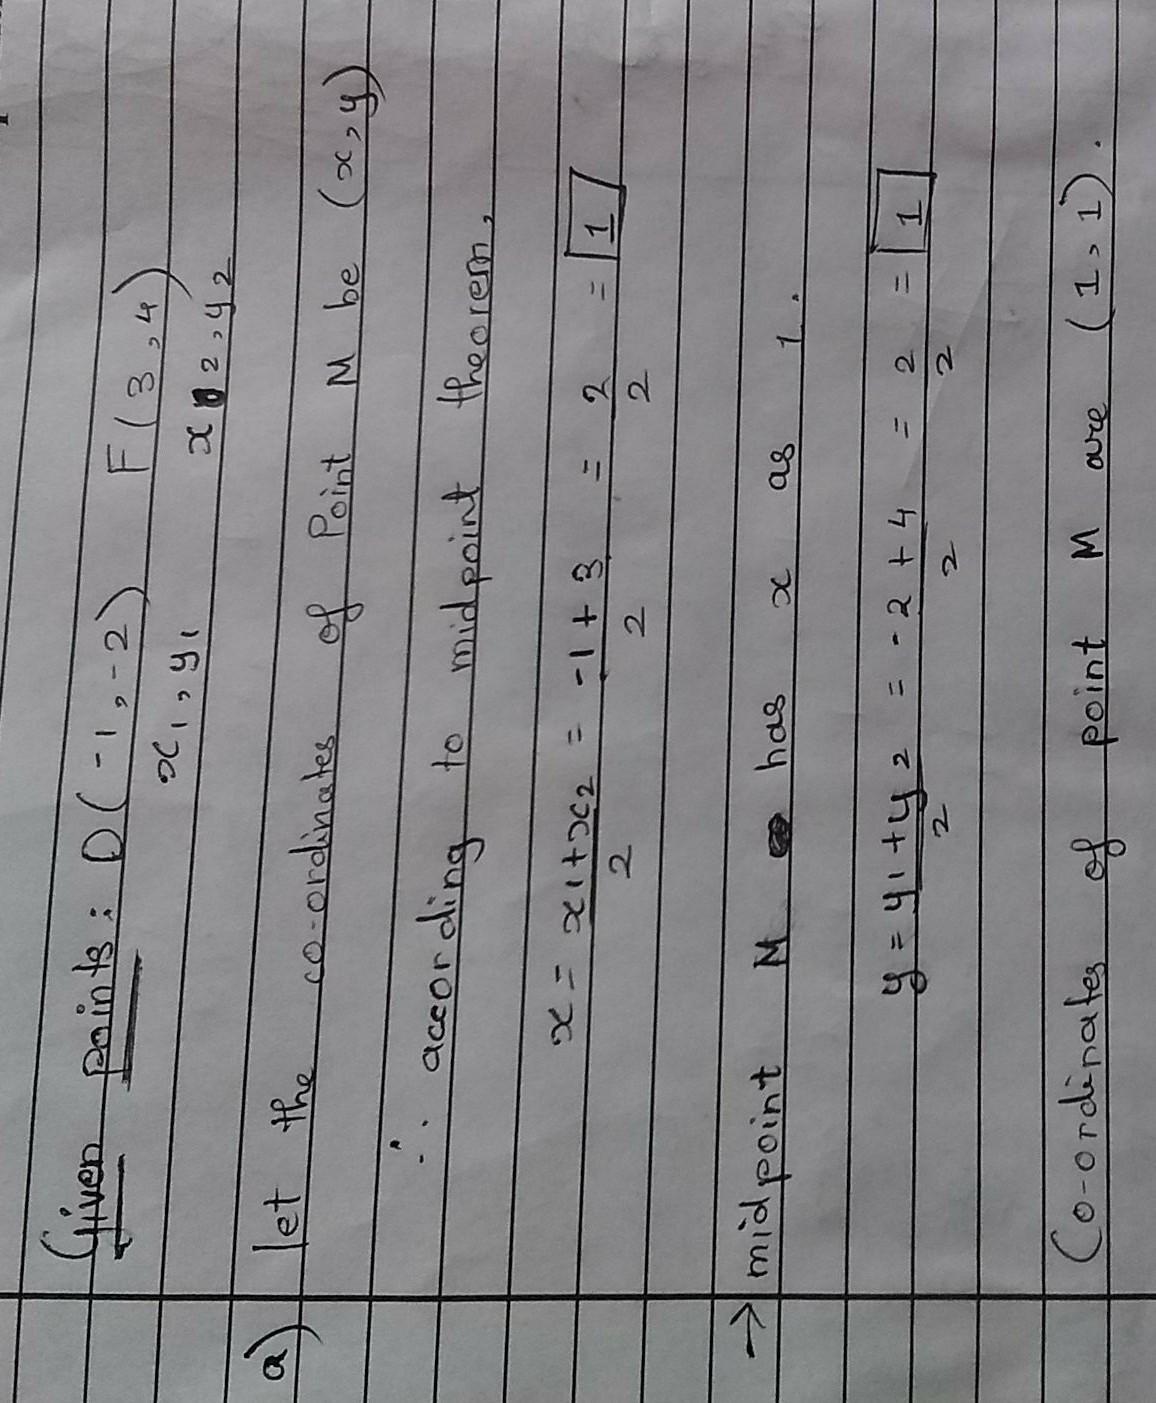 Given points: D(-1,-2) F(3,4)
x1,y1 x2,y2
a) let the co-ordinates of Point M be (x,y)
∴ according to midpoint theorem,
x = x1+x2/2 = -1+3/2 = 2/2 = 1
→ midpoint M has x as 1.
y = y1+y2/2 = -2+4/2 = 2/2 = 1
Co-ordinates of point M are (1,1).